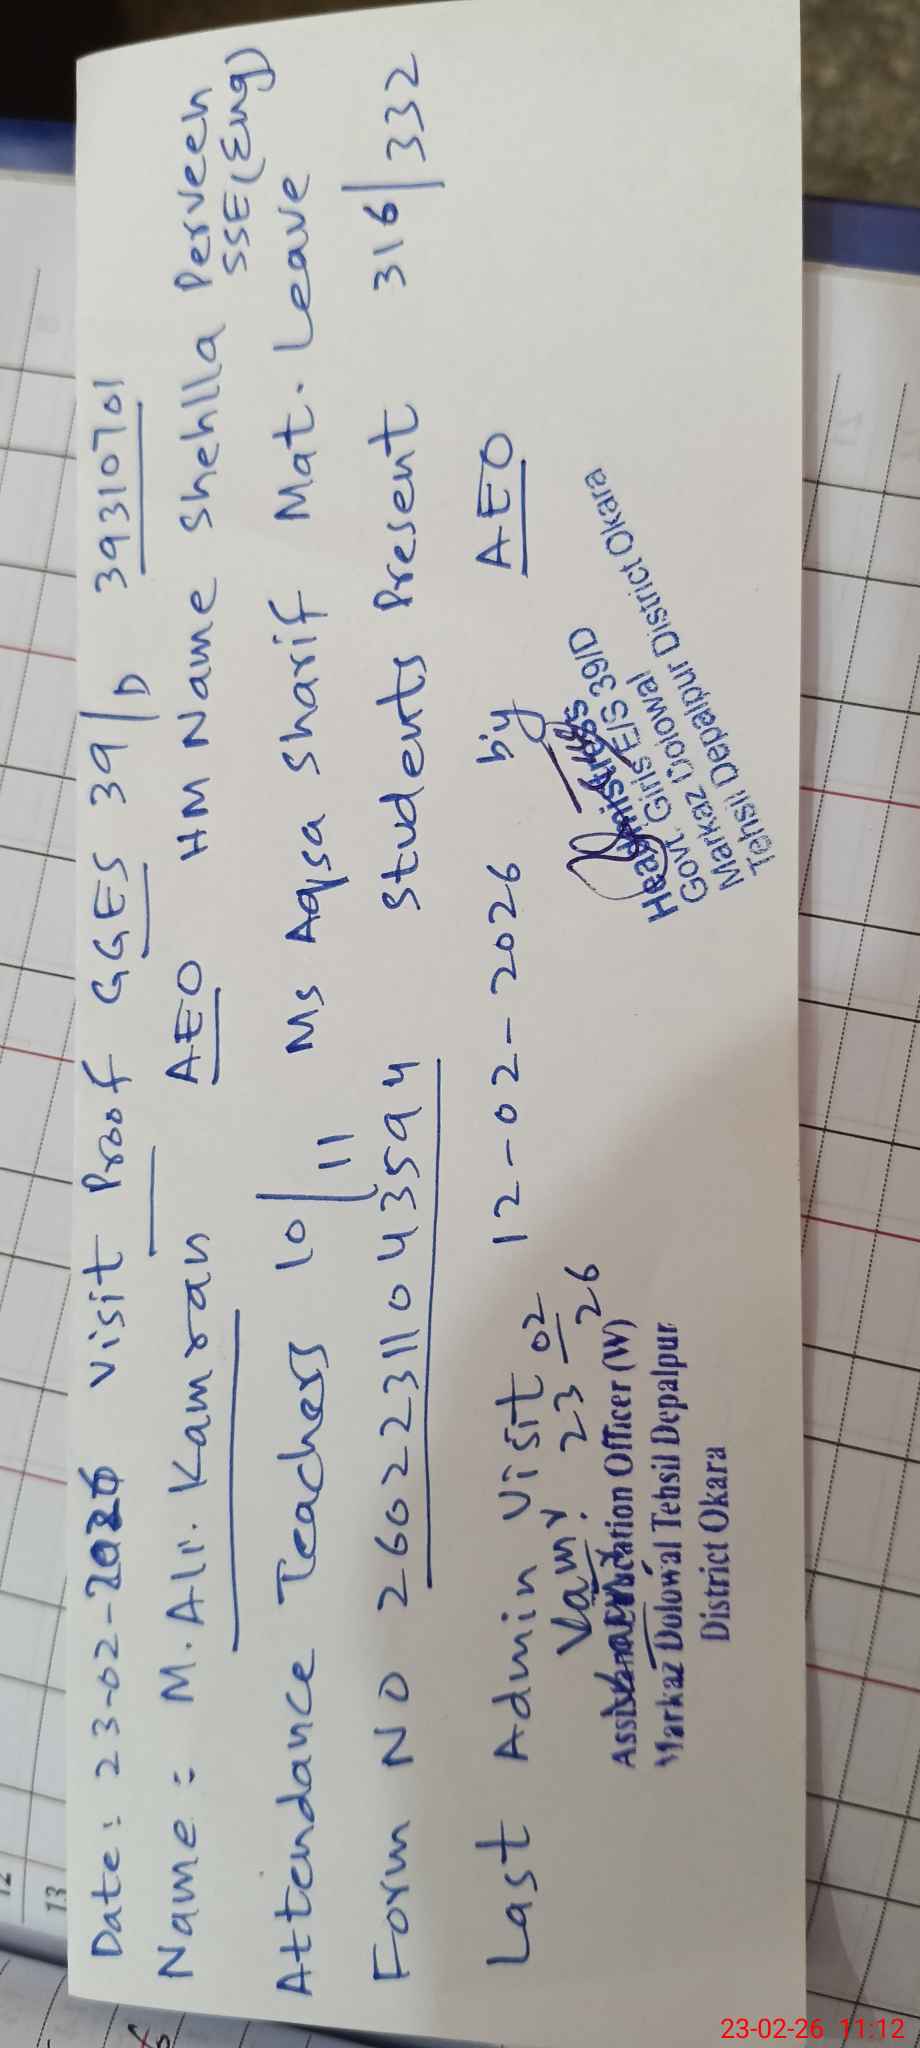 Date: 23-02-2026 Visit Proof GGES 39/D 39310701
Name: M. Ali Kamran AEO HM Name Shehlla Perveen
SSE (Eng)
Attendance Teachers 10/11 Ms Aqsa Sharif Mat. Leave
Form NO 26022311043594 Students Present 316/332
Last Admin Visit 12-02-2026 by AEO
23 02 26
Assistant Education Officer (W)
Markaz Dolowal Tehsil Depalpur
District Okara
Headmistress
Govt. Girls E/S 39/D
Markaz Dolowal
Tehsil Depalpur District Okara
23-02-26 11:12
12
13